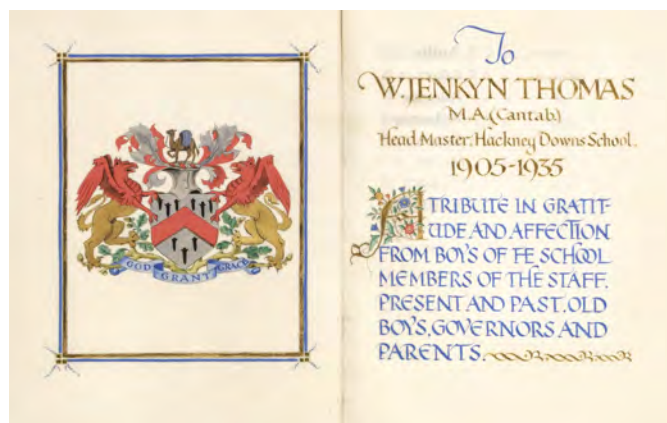 GOD GRANT GRACE
To
W. JENKYN THOMAS
M.A. (Cantab.)
Head Master, Hackney Downs School.
1905-1935
A TRIBUTE IN GRATIT-
UDE AND AFFECTION
FROM BOYS OF TE SCHOOL
MEMBERS OF THE STAFF.
PRESENT AND PAST. OLD
BOYS. GOVERNORS AND
PARENTS.